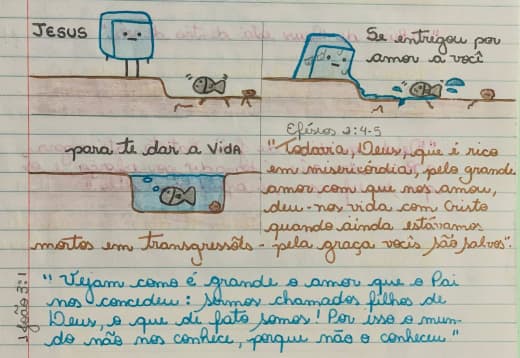 JESUS
Se entregou por
amor a você
para te dar a VIDA
Efésios 2:4-5
"Todavia, Deus, que é rico
em misericórdia, pelo grande
amor com que nos amou,
deu-nos vida com Cristo
quando ainda estávamos
mortos em transgressões - pela graça vocês são salvos".
I João 3:1
"Vejam como é grande o amor que o Pai
nos concedeu: sermos chamados filhos de
Deus, o que de fato somos! Por isso o mun-
do não nos conhece, porque não o conheceu"